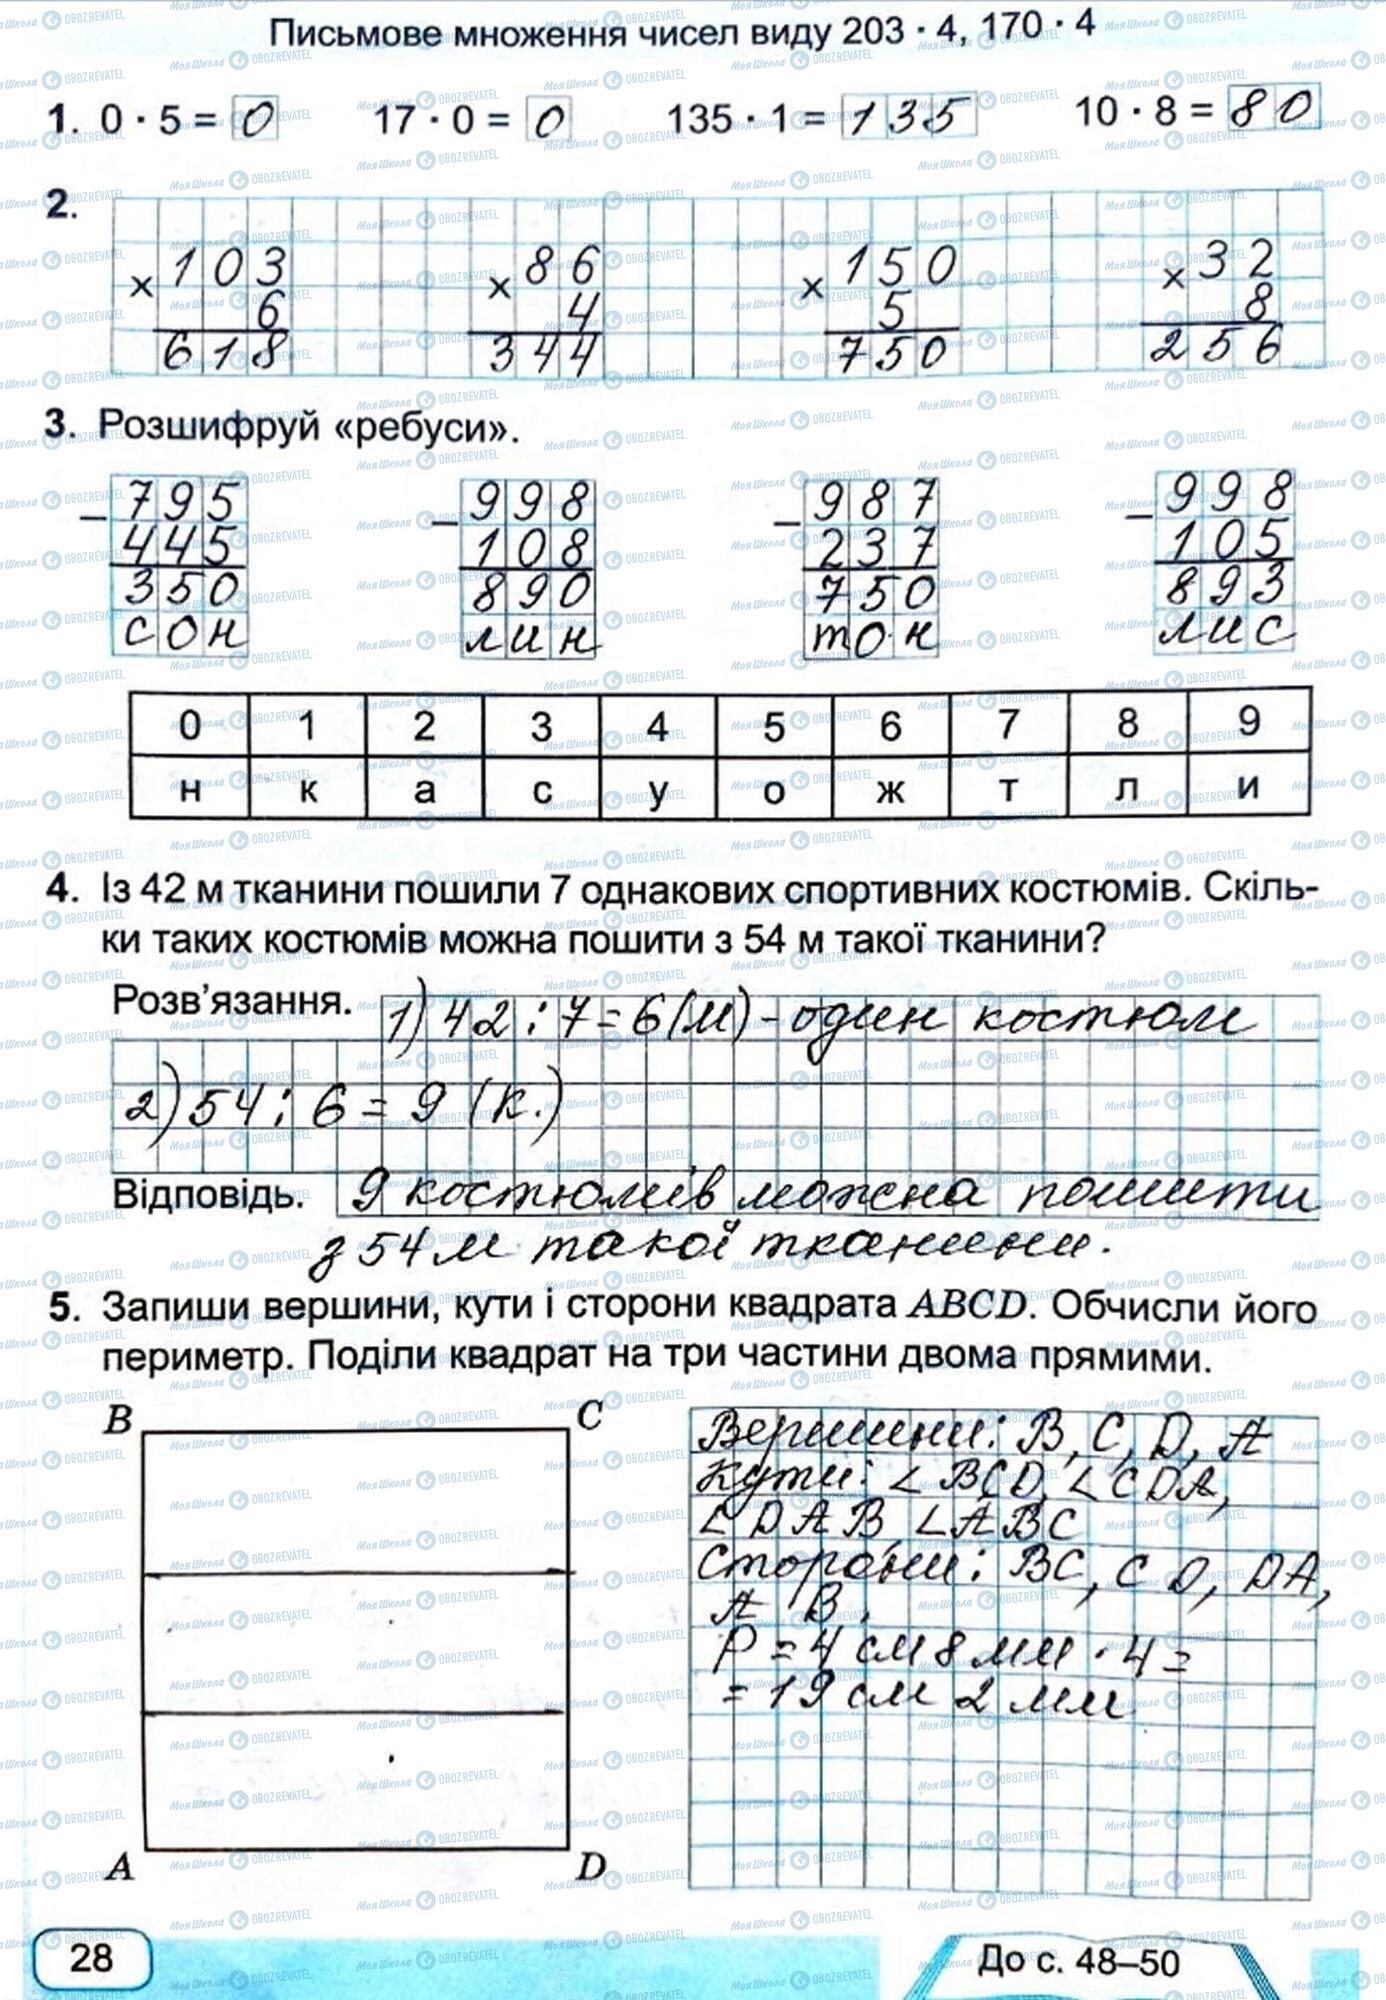 Письмове множення чисел виду 203 · 4, 170 · 4
1. 0 · 5 = 0   17 · 0 = 0   135 · 1 = 135   10 · 8 = 80
2.
× 103   × 86   × 150   × 32
6   4   5   8
618   344   750   256
3. Розшифруй «ребуси».
− 795   − 998   − 987   − 998
445   108   237   105
350   890   750   893
сон   лин   тон   лис
0 1 2 3 4 5 6 7 8 9
н к а с у о ж т л и
4. Із 42 м тканини пошили 7 однакових спортивних костюмів. Скіль-
ки таких костюмів можна пошити з 54 м такої тканини?
Розв'язання. 1) 42 : 7 = 6 (м) - один костюм
2) 54 : 6 = 9 (к.)
Відповідь. 9 костюмів можна пошити
з 54 м такої тканини.
5. Запиши вершини, кути і сторони квадрата ABCD. Обчисли його
периметр. Поділи квадрат на три частини двома прямими.
B   C
Вершини: B, C, D, A
Кути: ∠BCD, ∠CDA,
∠DAB, ∠ABC
Сторони: BC, CD, DA,
AB.
P = 4 см 8 мм · 4 =
= 19 см 2 мм
A   D
28
До с. 48–50
МояШкола OBOZREVATEL